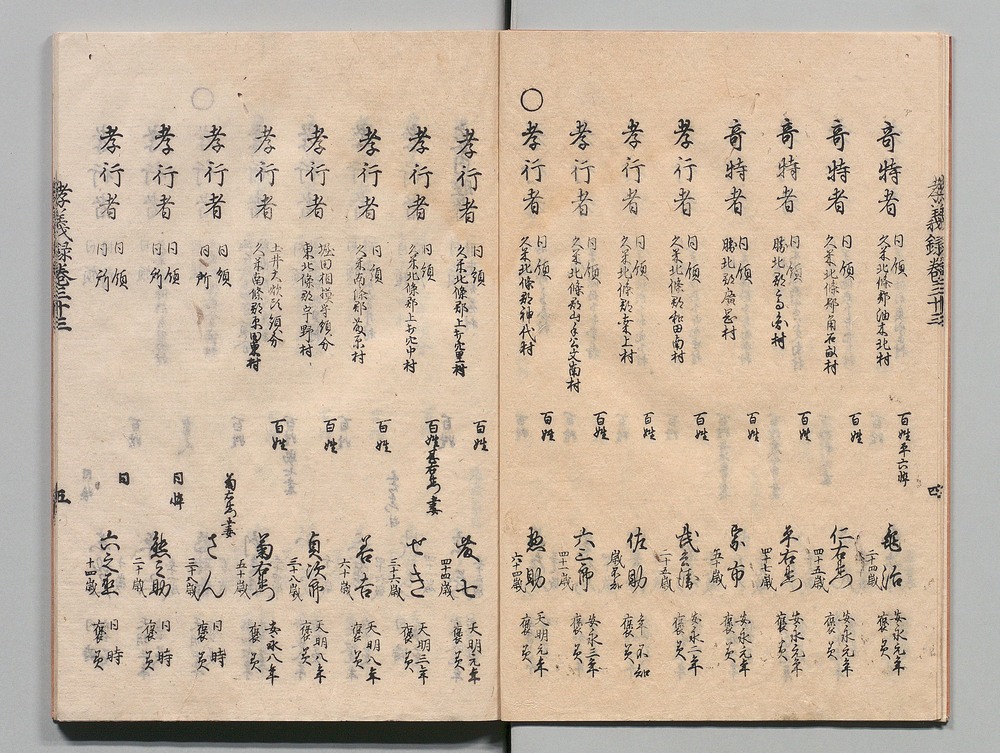 孝義録卷三十三
四
奇特者
同領
久米北條郡油木北村
百姓平六悴
亀治
二十四歳
安永元年
褒美
奇特者
同領
久米北條郡角石畝村
百姓
仁右衛門
四十五歳
安永元年
褒美
奇特者
同領
百姓
平右衛門
四十七歳
安永元年
褒美
奇特者
同領
百姓
家市
五十歳
安永元年
褒美
孝行者
同領
久米北條郡和田南村
百姓
二十五歳
安永二年
褒美
孝行者
同領
百姓
佐助
歳不知
年不知
褒美
孝行者
同領
久米北條郡山手公文南村
百姓
六三郎
四十二歳
安永三年
褒美
○
孝行者
同領
久米北條郡神代村
百姓
惣助
六十四歳
天明元年
褒美
孝行者
同領
百姓
七
四十四歳
天明元年
褒美
孝行者
同領
百姓甚右衛門妻
せき
三十六歳
天明三年
褒美
孝行者
同領
百姓
若吉
六十歳
天明八年
褒美
孝行者
堀田相模守領分
百姓
貞次郎
三十八歳
天明八年
褒美
孝行者
領分
百姓
菊右衛門
五十歳
安永八年
褒美
孝行者
同領
同所
菊右衛門妻
さん
三十八歳
同時
褒美
孝行者
同領
同所
同悴
熊之助
二十歳
同時
褒美
孝行者
同領
同所
同
六之丞
十四歳
同時
褒美
孝義録卷三十三
五